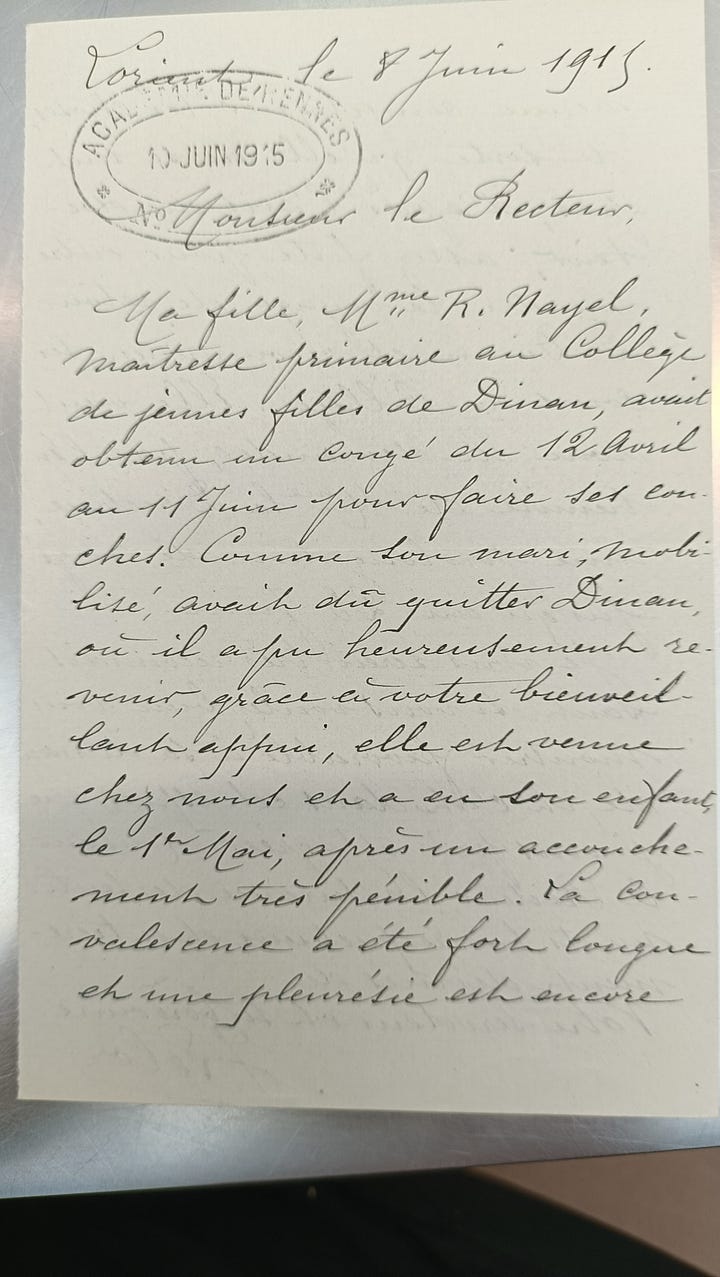 Lorient le 8 Juin 1915.
ACADÉMIE DE RENNES
10 JUIN 1915
No
Monsieur le Recteur,
Ma fille, Mme R. Nayel,
maîtresse primaire au Collège
de jeunes filles de Dinan, avait
obtenu un congé du 12 Avril
au 11 Juin pour faire ses cou-
ches. Comme son mari, mobi-
lisé, avait dû quitter Dinan,
où il a pu heureusement re-
venir, grâce à votre bienveil-
lant appui, elle est venue
chez nous et a eu son enfant,
le 1er Mai, après un accouche-
ment très pénible. La con-
valescence a été fort longue
et une pleurésie est encore